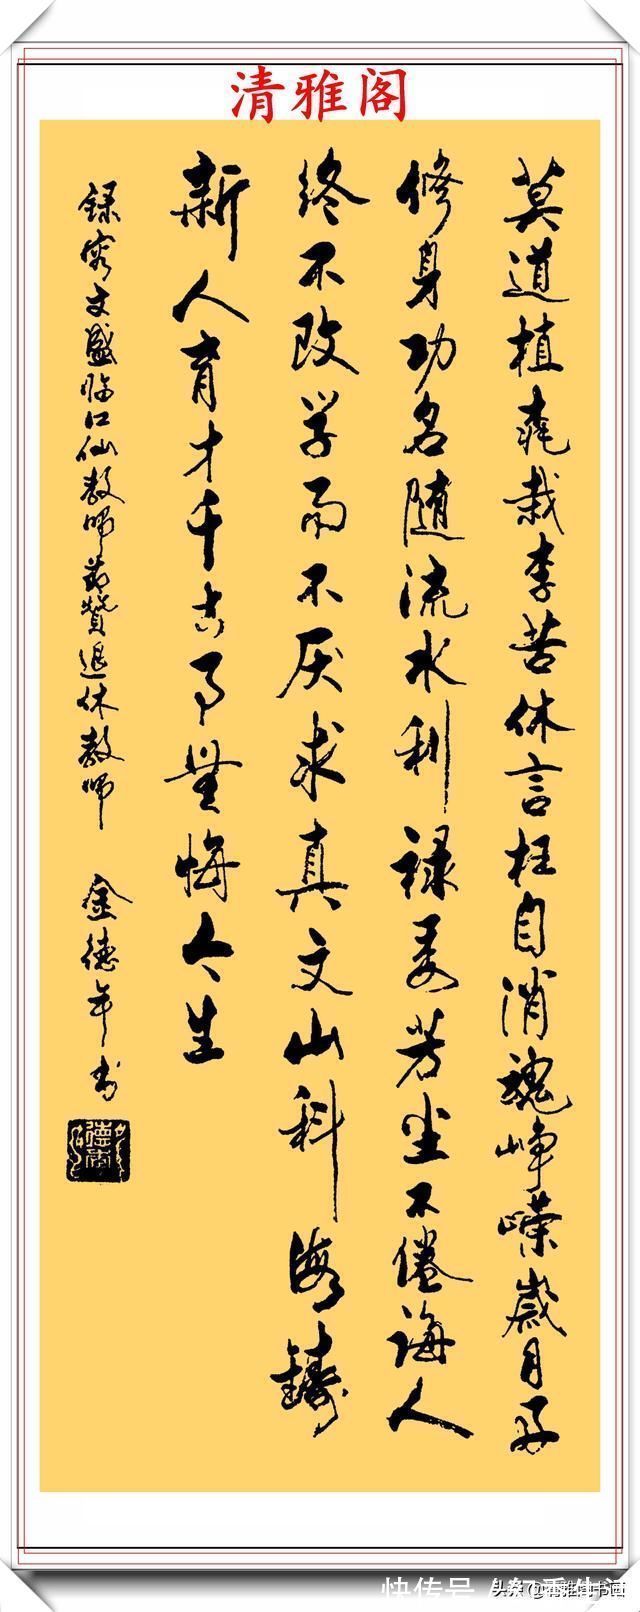 清雅阁
莫道植桃栽李苦休言枉自消魂峥嵘岁月好
修身功名随流水利禄委芳尘不倦诲人
终不改学而不厌求真文山科海铸
新人育才千古事无悔今生
录容文盛临江仙教师节赞退休教师
金德年书
快传号
头条@清雅阁书画